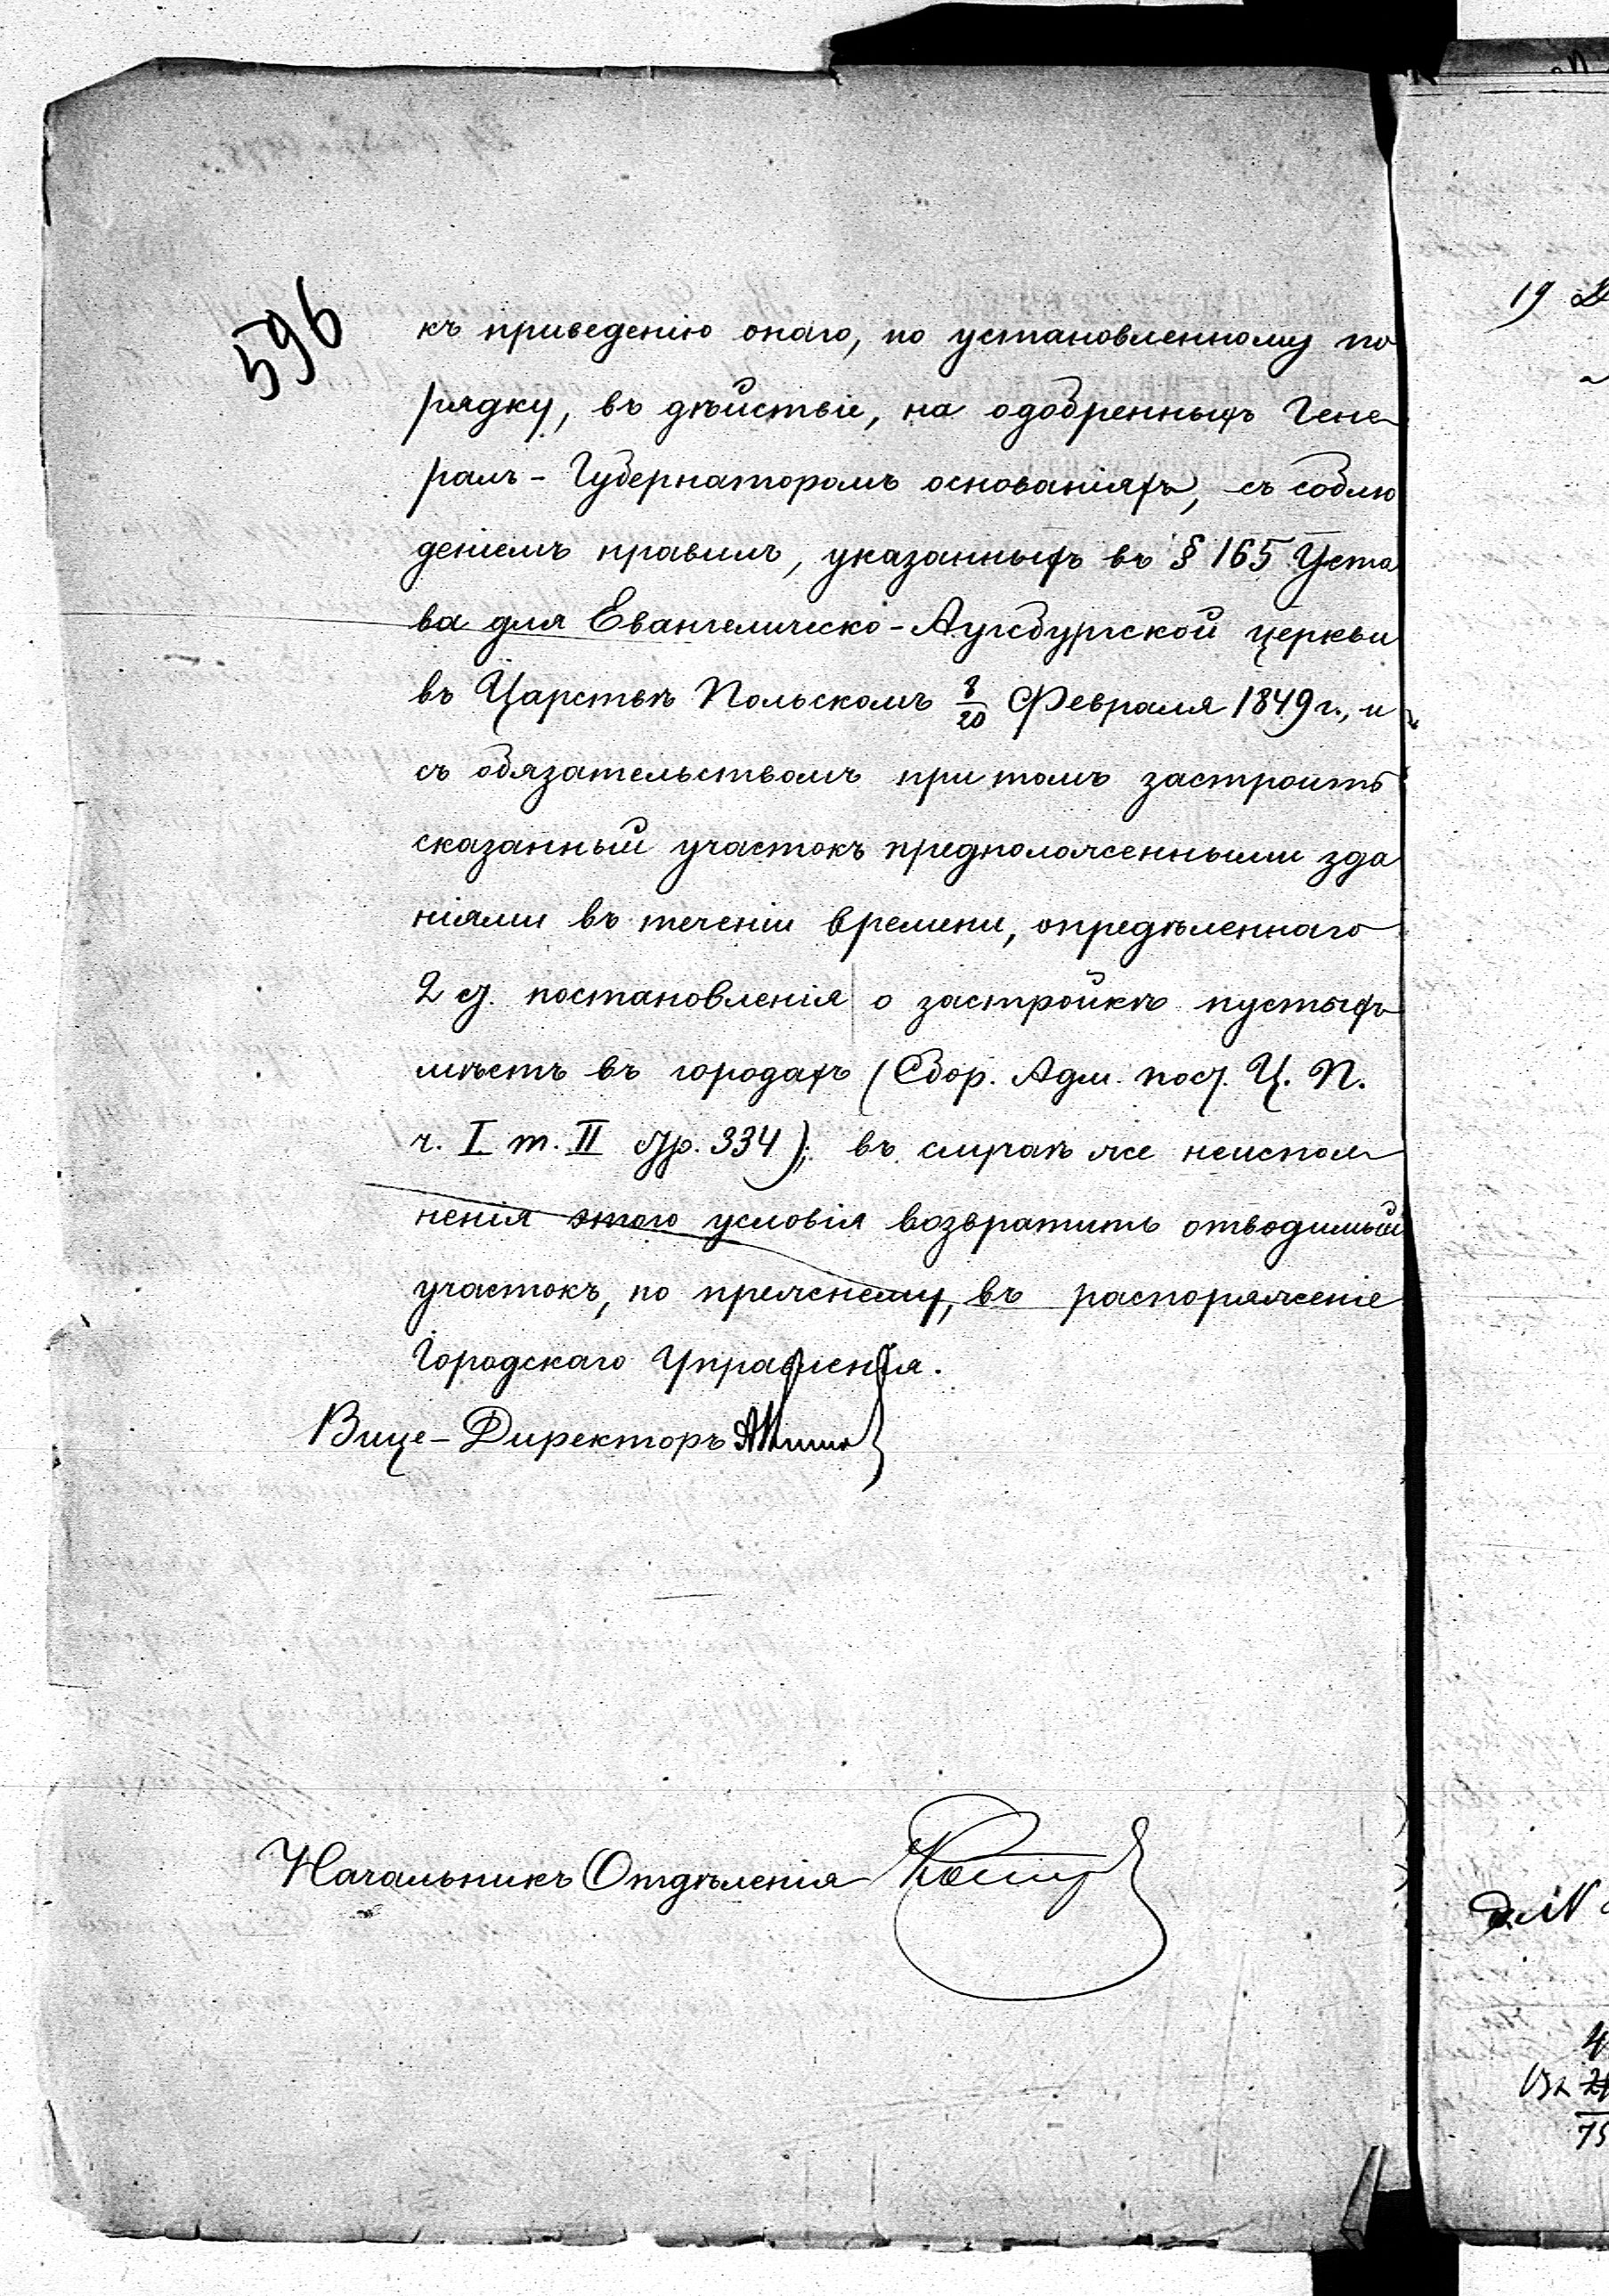 596
къ приведенію онаго, по установленному по
рядку, въ дѣйствіе, на одобренныхъ Гене
ралъ-Губернаторомъ основаніяхъ, съ соблю
деніемъ правилъ, указанныхъ въ § 165 Уста
ва для Евангелическо-Аугсбургской церкви
въ Царствѣ Польскомъ 8/20 Февраля 1849 г., и
съ обязательствомъ при томъ застроить
сказанный участокъ предположенными зда
ніями въ теченіи времени, опредѣленнаго
2 ст. постановленія о застройкѣ пустыхъ
мѣстъ въ городахъ (Сбор. Адм. пост. Ц. П.
ч. I т. II стр. 334); въ случаѣ же неиспол
ненія этого условія возвратить отводимый
участокъ, по прежнему, въ распоряженіе
Городскаго Управленія.
Вице-Директоръ
Начальникъ Отдѣленія
19